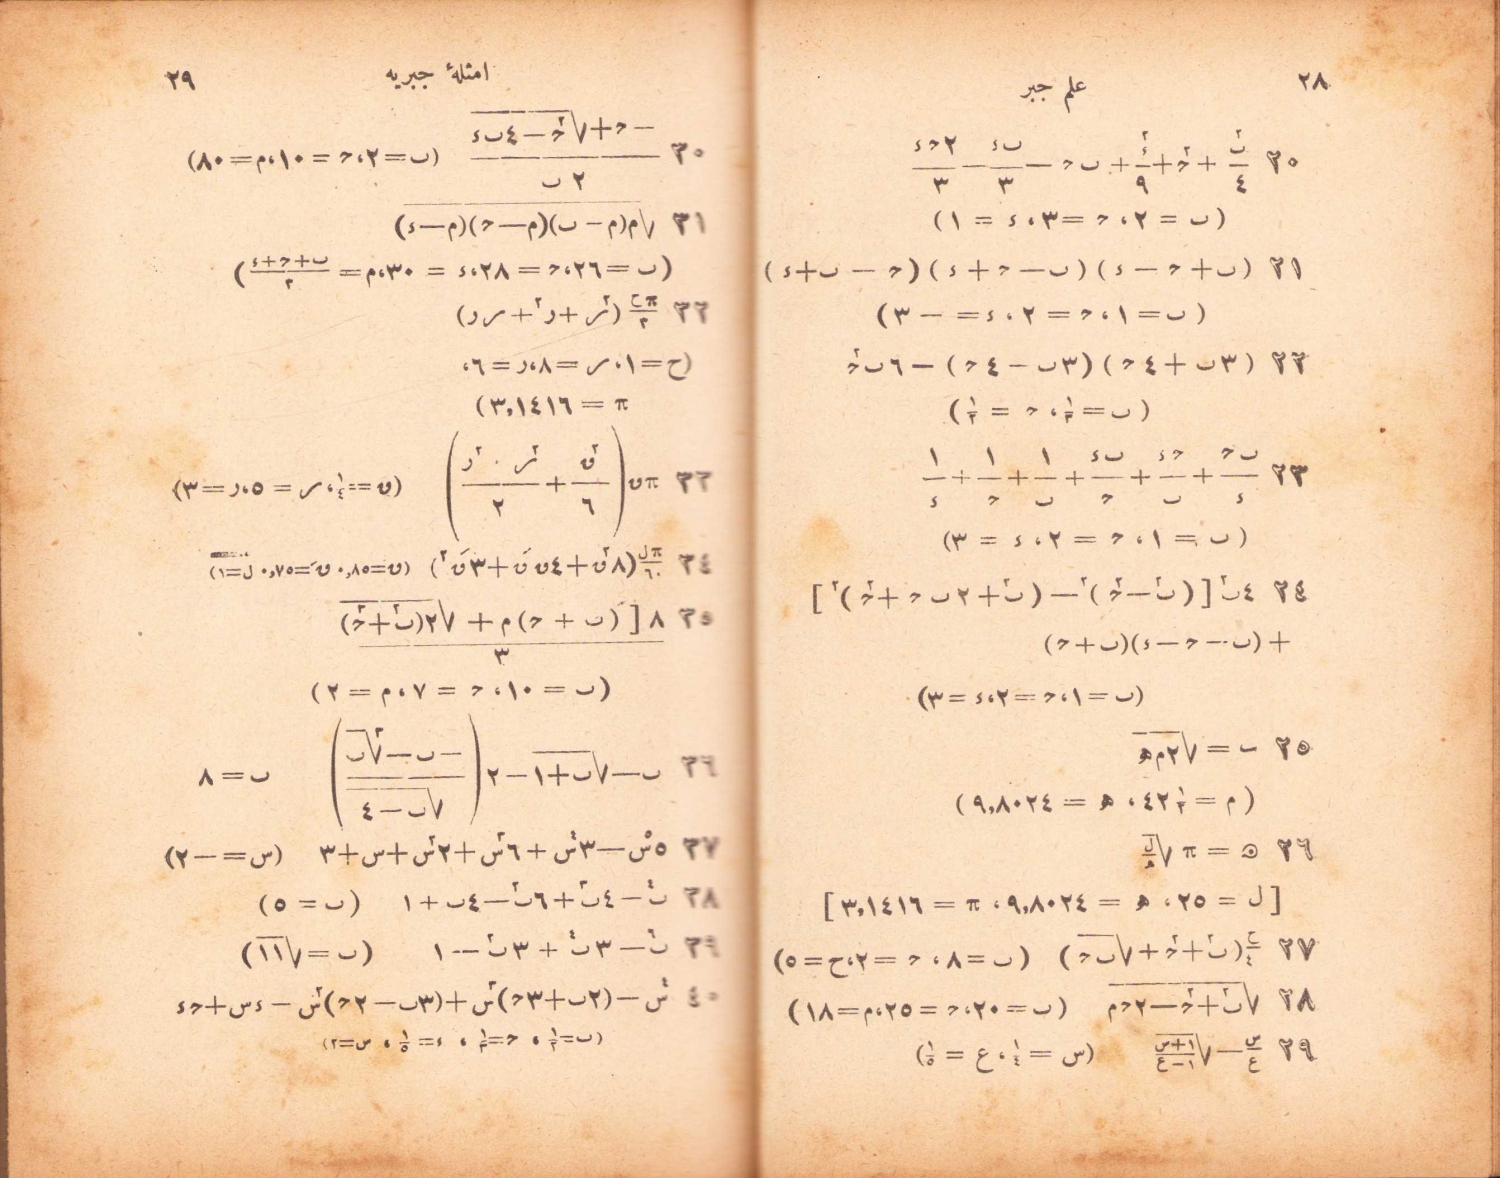 ٢٨
علم جبر
٢٠ ب٢/٤ + ح٢ + ء٢/٩ + ب ح − ب ء/٣ − ٢ ح ء/٣
(ب = ٢، ح = ٣، ء = ١)
٢١ (ب + ح − ء) (ب − ح + ء) (ح − ب + ء)
(ب = ١، ح = ٢، ء = − ٣)
٢٢ (٣ب + ٤ح) (٣ب − ٤ح) − ٦ب٢ح
(ب = ١/٢، ح = ١/٣)
٢٣ ب ح/ء + ح ء/ب + ب ء/ح + ١/ب + ١/ح + ١/ء
(ب = ١، ح = ٢، ء = ٣)
٢٤ ٤ب٢ [(ب٢ − ح٢)٢ − (ب٢ + ٢ ب ح + ح٢)٢]
+ (ب − ح − ء)(ب + ح)
(ب = ١، ح = ٢، ء = ٣)
٢٥ = √٢م ھ
(م = ٤٢ ١/٢، ھ = ٩,٨٠٢٤)
٢٦ = π √ل/ھ
[ل = ٢٥، ھ = ٩,٨٠٢٤، π = ٣,١٤١٦]
٢٧ ح/٤ (ب٢ + ح٢ + √ب ح) (ب = ٨، ح = ٢، ح = ٥)
٢٨ √ب٢ + ح٢ − ٢ ح م (ب = ٢٠، ح = ٢٥، م = ١٨)
٢٩ س/ع − √١+س/١−ع (س = ١/٤، ع = ١/٥)
٢٩
امثلهٔ جبريه
٣٠ − ح + √ح٢ − ٤ ب ء / ٢ ب (ب = ٢، ح = ١٠، م = ٨٠)
٣١ √م(م − ب)(م − ح)(م − ء)
(ب = ٢٦، ح = ٢٨، ء = ٣٠، م = ب + ح + ء/٢)
٣٢ π ح/٣ (ر٢ + ر٢ + ر ر)
(ح = ١، ر = ٨، ر = ٦،
π = ٣,١٤١٦)
٣٣ π ق (ق٢/٦ + ر٢ · ر٢/٢) (ق = ١/٤، ر = ٥، ر = ٣)
٣٤ π ل/٦٠ (٨ ق٢ + ٤ ق قَ + ٣ قَ٢) (ق = ٠,٨٥ قَ = ٠,٧٥ ل = ١)
٣٥ ٨ [(ب + ح) م + √٢(ب٢ + ح٢)] / ٣
(ب = ١٠، ح = ٧، م = ٢)
٣٦ ب − √ب + ١ − ٢ (− ب − √ب٣ / √ب − ٤) ب = ٨
٣٧ ٥س٥ − ٣س٤ + ٦س٣ + ٢س٢ + س + ٣ (س = − ٢)
٣٨ ب٤ − ٤ب٣ + ٦ب٢ − ٤ب + ١ (ب = ٥)
٣٩ ب٦ − ٣ب٤ + ٣ب٢ − ١ (ب = √١١)
٤٠ س٤ − (٢ب + ٣ح)س٣ + (٣ب − ٢ح)س٢ − ء س + ح ء
(ب = ١/٢، ح = ١/٣، ء = ١/٥، س = ٢)